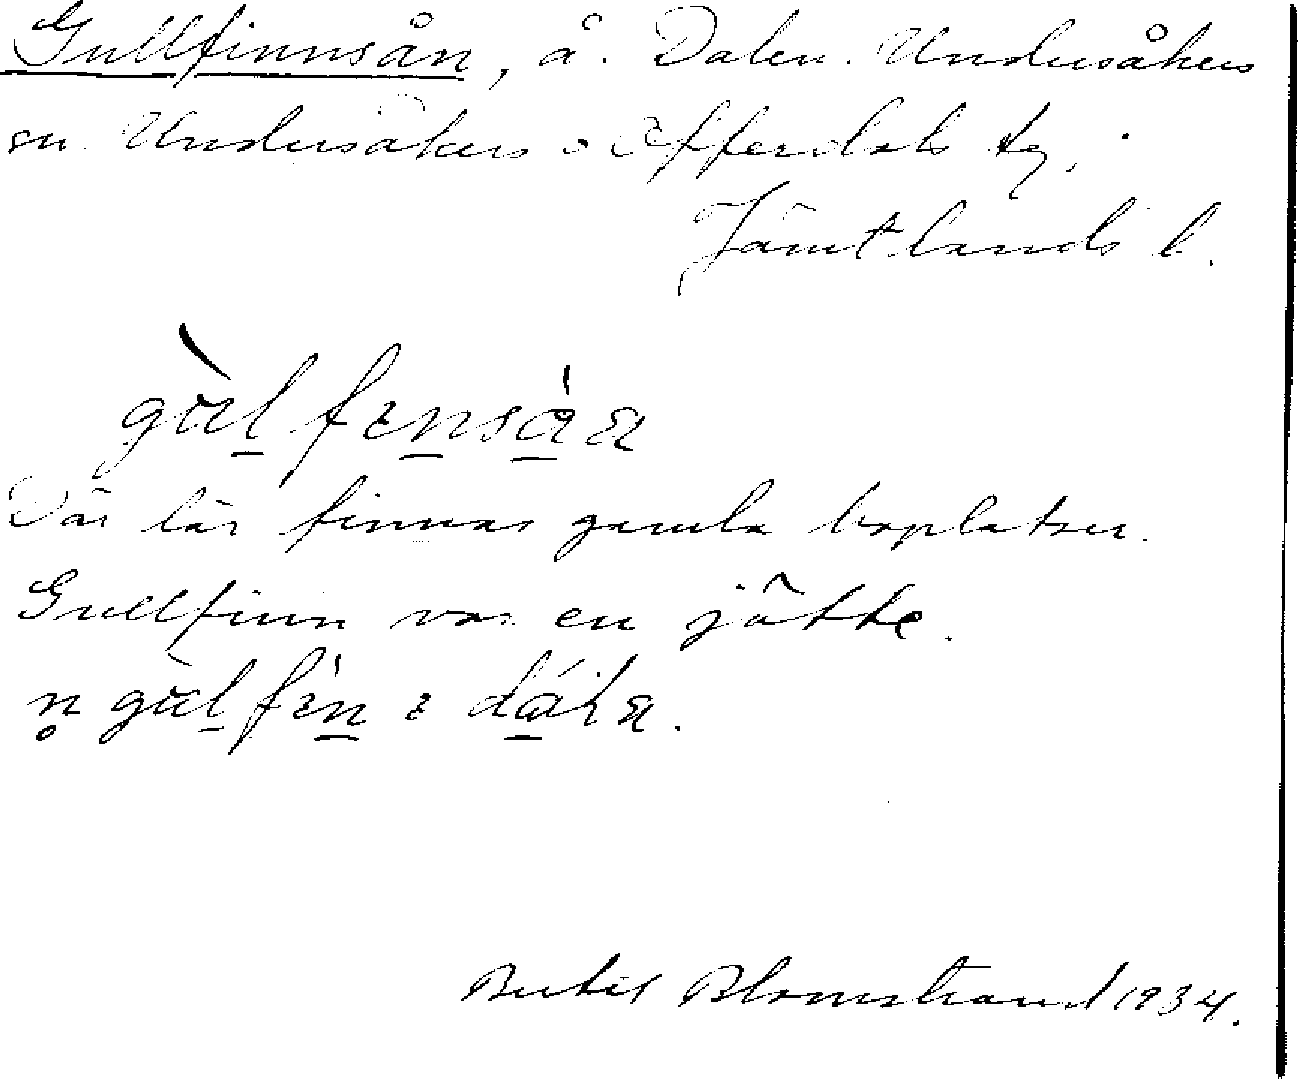 Gullfinnsån, å. Dalen. Undersåkers
sn. Undersåkers o Offerdals tg,
Jämtlands l.
gu̇lfɪnsåa
Där lär finnas gamla boplatser.
Gullfinn var en jätte.
n̥ gu̇lfɪn ɪ
Bertil Blomstrand 1934.